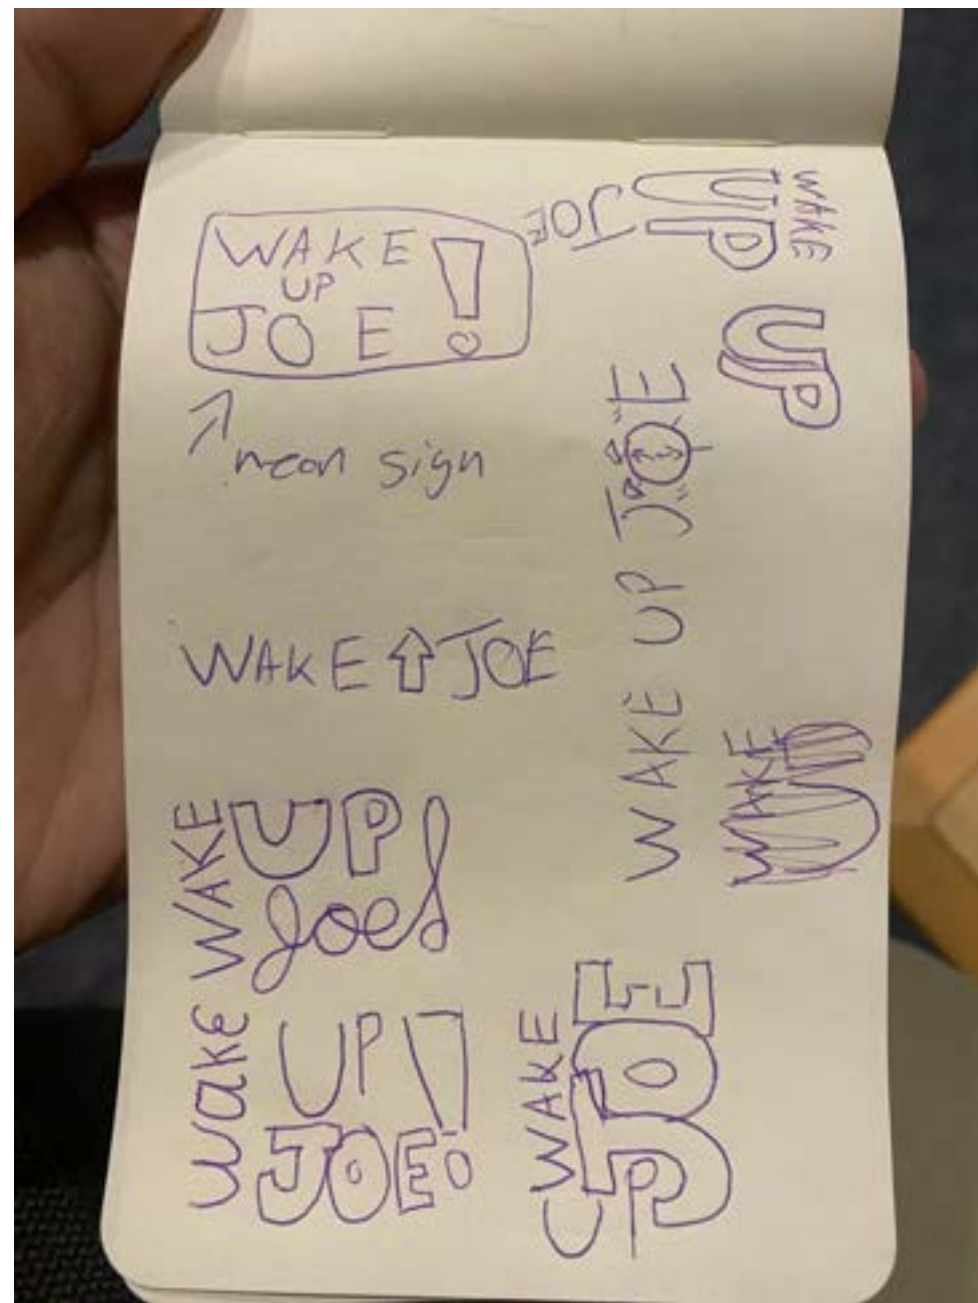 WAKE
UP
JOE !
neon sign
WAKE
UP
JOE
UP
WAKE UP JOE
WAKE ⇧ JOE
WAKE
WAKE
UP
Joe!
Wake
UP!
JOE!
WAKE
UP
JOE